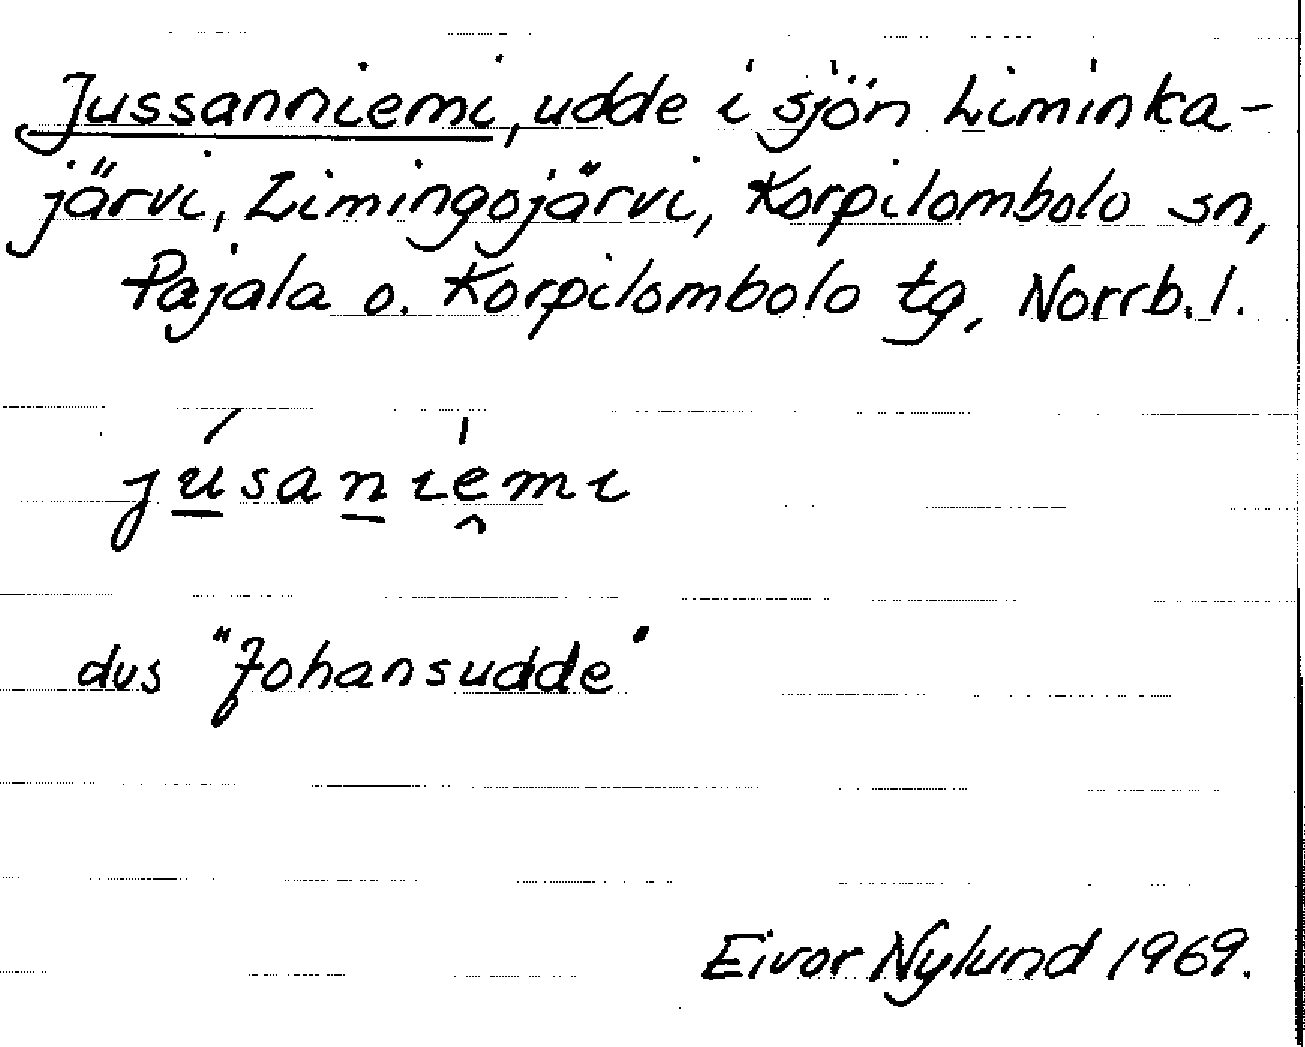 Jussanniemi, udde i sjön Liminka-
järvi, Limingojärvi, Korpilombolo sn,
Pajala o. Korpilombolo tg, Norrb. l.
júsanıemı
dvs "Johansudde"
Eivor Nylund 1969.